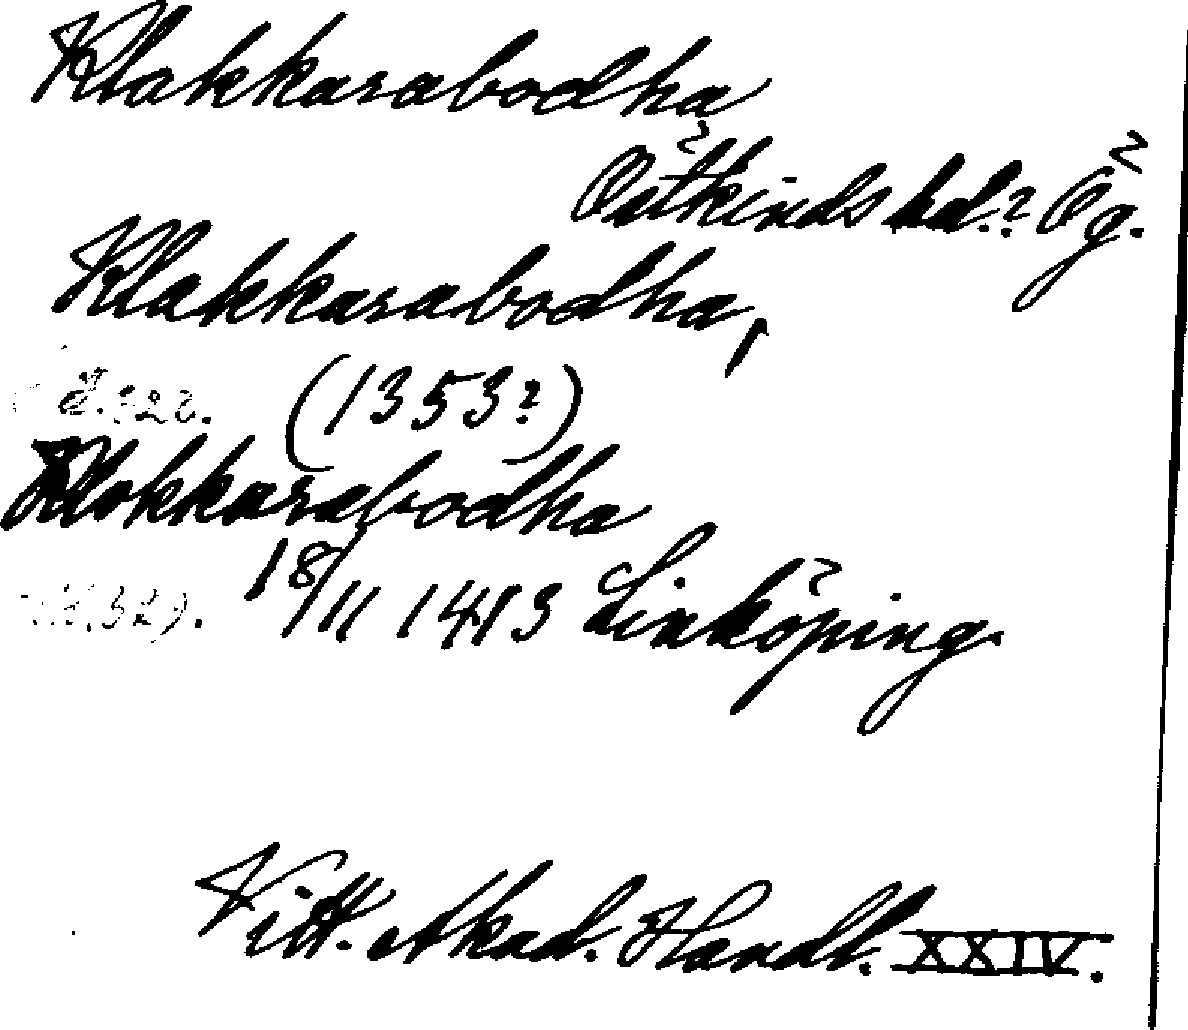 Klakkarabodha
Östkinds hd.? Ög.
Klakkarabodha,
S. 328. (1353?)
Klokkarabodha
S. 329. 18/11 1413 Linköping.
Vitt. Akad. Handl. XXIV.